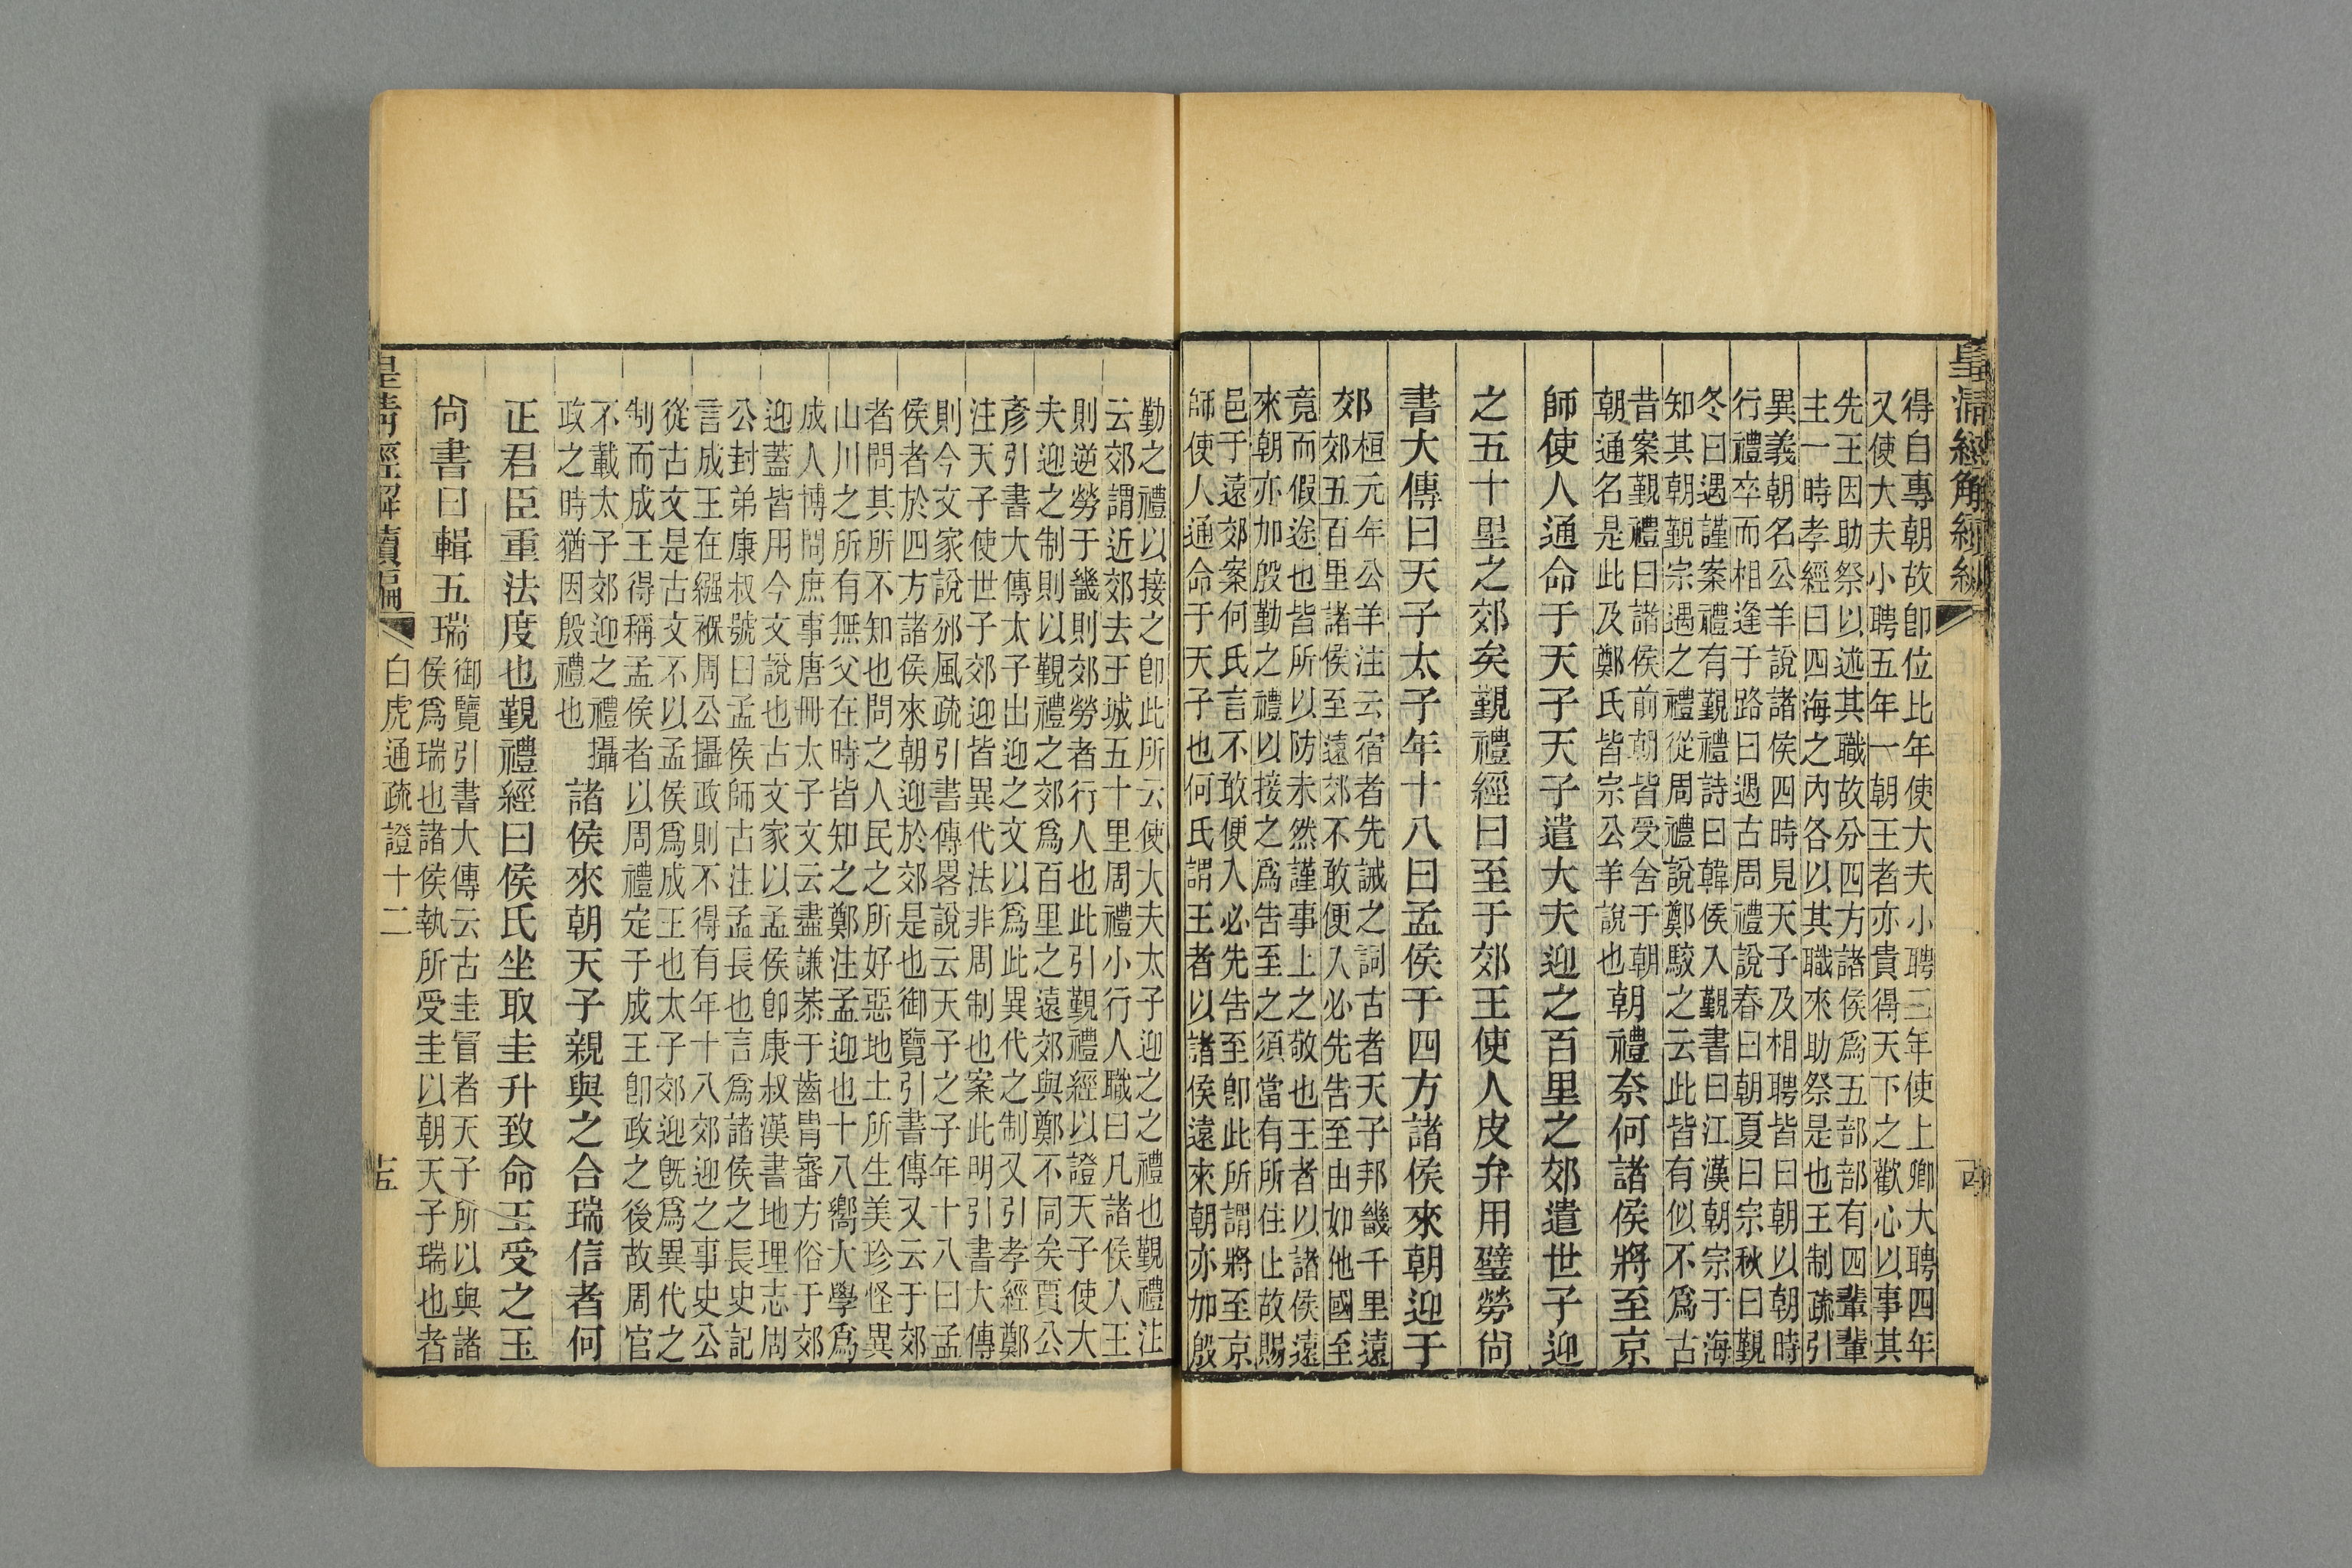 皇淸經解續編
得自專朝故卽位比年使大夫小聘三年使上卿大聘四年
又使大夫小聘五年一朝王者亦貴得天下之歡心以事其
先王因助祭以述其職故分四方諸侯爲五部部有四輩輩
主一時孝經曰四海之內各以其職來助祭是也王制疏引
異義朝名公羊說諸侯四時見天子及相聘皆曰朝以朝時
行禮卒而相逢于路曰遇古周禮說春曰朝夏曰宗秋曰覲
冬曰遇謹案禮有覲禮詩曰韓侯入覲書曰江漢朝宗于海
知其朝覲宗遇之禮從周禮說鄭駮之云此皆有似不爲古
昔案覲禮曰諸侯前朝皆受舍于朝
朝通名是此及鄭氏皆宗公羊說也
朝禮奈何諸侯將至京
師使人通命于天子天子遣大夫迎之百里之郊遣世子迎
之五十里之郊矣覲禮經曰至于郊王使人皮弁用璧勞尙
書大傳曰天子太子年十八曰孟侯于四方諸侯來朝迎于
郊
桓元年公羊注云宿者先誡之詞古者天子邦畿千里遠
郊五百里諸侯至遠郊不敢便入必先告至由如他國至
竟而假途也皆所以防未然謹事上之敬也王者以諸侯遠
來朝亦加殷勤之禮以接之爲告至之須當有所住止故賜
邑于遠郊案何氏言不敢便入必先告至卽此所謂將至京
師使人通命于天子也何氏謂王者以諸侯遠來朝亦加殷
勤之禮以接之卽此所云使大夫太子迎之之禮也覲禮注
云郊謂近郊去王城五十里周禮小行人職曰凡諸侯入王
則逆勞于畿則郊勞者行人也此引覲禮經以證天子使大
夫迎之制則以覲禮之郊爲百里之遠郊與鄭不同矣賈公
彥引書大傳太子出迎之文以爲此異代之制又引孝經鄭
注天子使世子郊迎皆異代法非周制也案此明引書大傳
則今文家說邠風疏引書傳畧說云天子之子年十八曰孟
侯者於四方諸侯來朝迎於郊是也御覽引書傳又云于郊
者問其所不知也問之人民之所好惡地土所生美珍怪異
山川之所有無父在時皆知之鄭注孟迎也十八嚮大學爲
成人博問庶事唐冊太子文云盡謙恭于齒胄審方俗于郊
迎蓋皆用今文說也古文家以孟侯卽康叔漢書地理志周
公封弟康叔號曰孟侯師古注孟長也言爲諸侯之長史記
言成王在繦褓周公攝政則不得有年十八郊迎之事史公
從古文是古文不以孟侯爲成王也太子郊迎旣爲異代之
制而成王得稱孟侯者以周禮定于成王卽政之後故周官
不載太子郊迎之禮攝
政之時猶因殷禮也
諸侯來朝天子親與之合瑞信者何
正君臣重法度也覲禮經曰侯氏坐取圭升致命王受之玉
尙書曰輯五瑞
御覽引書大傳云古圭冒者天子所以與諸
侯爲瑞也諸侯執所受圭以朝天子瑞也者
皇淸經解續編
白虎通疏證十二